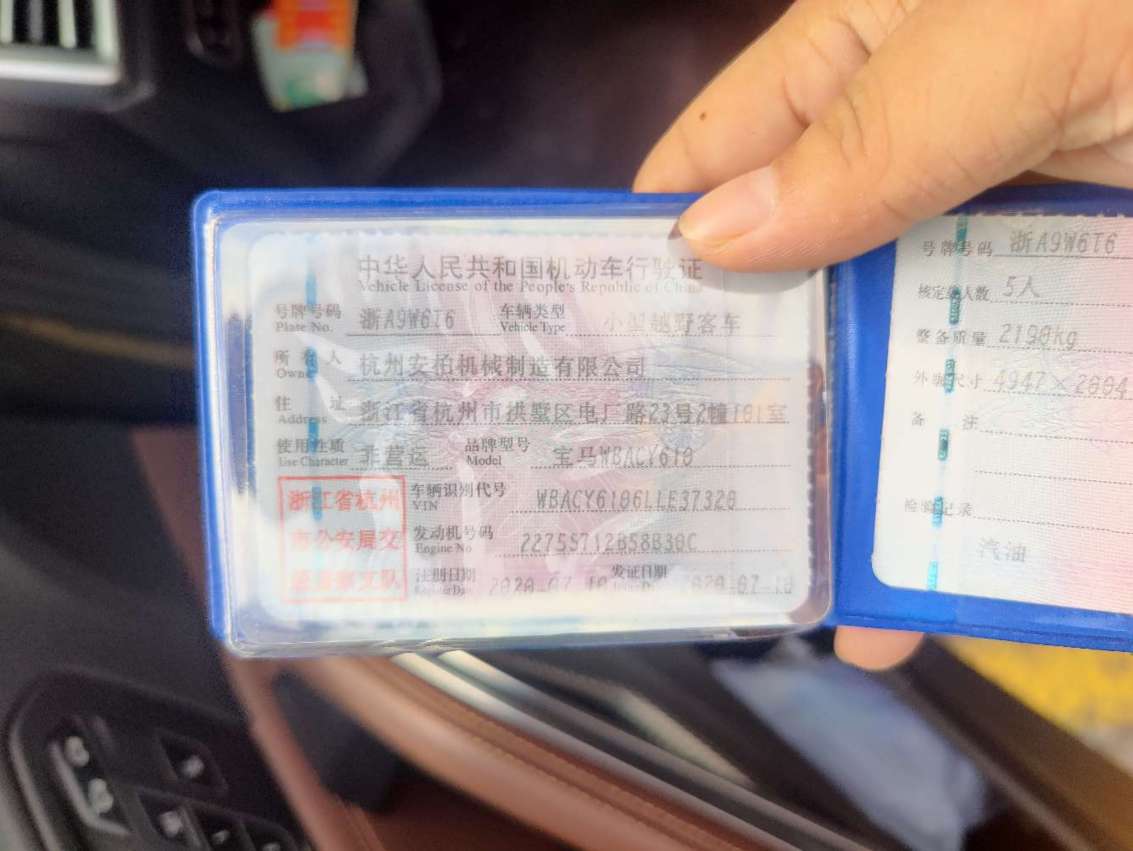 中华人民共和国机动车行驶证
Vehicle License of the People's Republic of China
号牌号码 浙A9W6T6 车辆类型 小型越野客车
Plate No. Vehicle Type
所有人 杭州安柏机械制造有限公司
Owner
住址 浙江省杭州市拱墅区电厂路23号2幢101室
Address
使用性质 非营运 品牌型号 宝马WBACY610
Use Character Model
浙江省杭州市公安局交通警察支队
车辆识别代号 WBACY6106LLE37320
VIN
发动机号码 2275S712B58B30C
Engine No
注册日期 2020-07-10 发证日期 2020-07-10
号牌号码 浙A9W6T6
核定载人数 5人
整备质量 2190kg
外廓尺寸 4947×2004
备注
检验记录
汽油